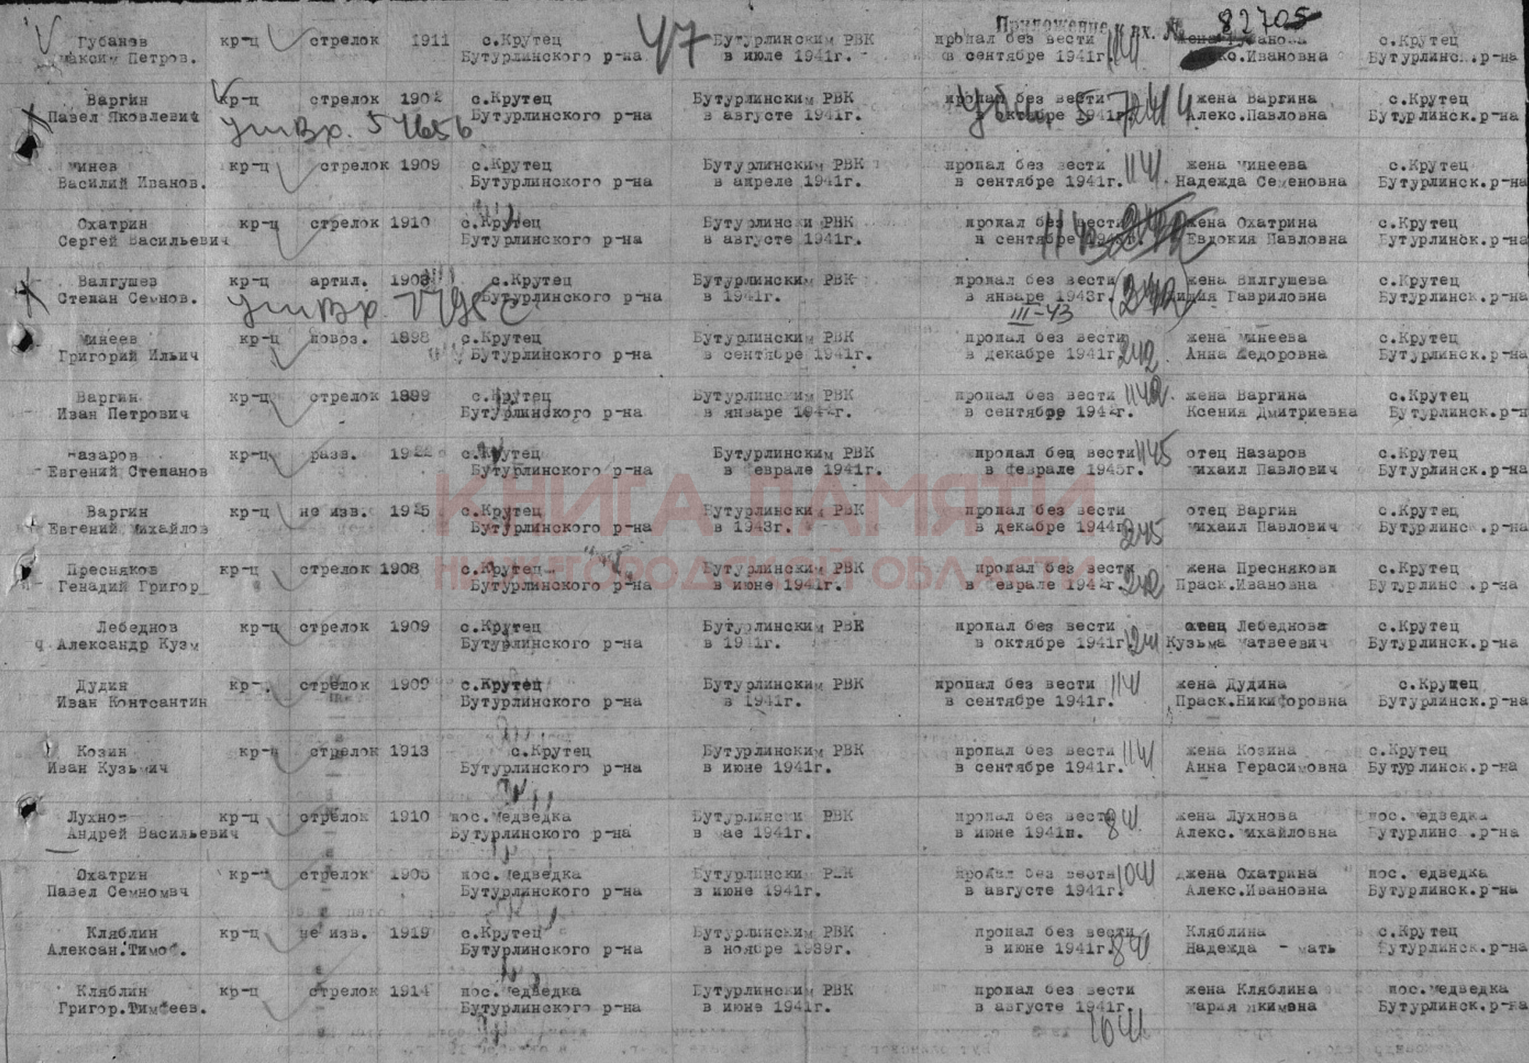 Приложение к вх. № 82705
47
Губанов кр-ц стрелок 1911 с.Крутец Бутурлинским РВК пропал без вести жена Губанова с.Крутец
Максим Петров. Бутурлинского р-на в июле 1941г. в сентябре 1941г. Алекс.Ивановна Бутурлинс.р-на
Варгин кр-ц стрелок 1902 с.Крутец Бутурлинским РВК пропал без вести жена Варгина с.Крутец
Павел Яковлевич Бутурлинского р-на в августе 1941г. в октябре 1941г. Алекс.Павловна Бутурлинск.р-на
Минев кр-ц стрелок 1909 с.Крутец Бутурлинским РВК пропал без вести 1141 жена Минеева с.Крутец
Василий Иванов. Бутурлинского р-на в апреле 1941г. в сентябре 1941г. Надежда Семеновна Бутурлинск.р-на
Охатрин кр-ц стрелок 1910 с.Крутец Бутурлински РВК пропал без вести жена Охатрина с.Крутец
Сергей Васильевич Бутурлинского р-на в августе 1941г. в сентябре Евдокия Павловна Бутурлинск.р-на
Валгушев кр-ц артил. 1903 с.Крутец Бутурлинским РВК пропал без вести жена Вилгушева с.Крутец
Степан Семнов. Бутурлинского р-на в 1941г. в январе 1943г. Лидия Гавриловна Бутурлинск.р-на
III-43
Минеев кр-ц повоз. 1898 с.Крутец Бутурлинским РВК пропал без вести жена Минеева с.Крутец
Григорий Ильич Бутурлинского р-на в сентябре 1941г. в декабре 1941г. 242 Анна Федоровна Бутурлинск.р-на
Варгин кр-ц стрелок 1899 с.Крутец Бутурлинским РВК пропал без вести 1142 жена Варгина с.Крутец
Иван Петрович Бутурлинского р-на в январе 1942г. в сентябре 1942г. Ксения Дмитриевна Бутурлинск.р-н
Назаров кр-ц разв. 1922 с.Крутец Бутурлинским РВК пропал бец вести 1145 отец Назаров с.Крутец
Евгений Степанов Бутурлинского р-на в феврале 1941г. в феврале 1945г. Михаил Павлович Бутурлинск.р-на
Варгин кр-ц не изв. 1925 с.Крутец Бутурлинским РВК пропал без вести отец Варгин с.Крутец
Евгений Михайлов Бутурлинского р-на в 1943г. в декабре 1944г. 245 Михаил Павлович Бутурлинс.р-на
Пресняков кр-ц стрелок 1908 с.Крутец Бутурлинским РВК пропал без вести жена Преснякова с.Крутец
Генадий Григор Бутурлинского р-на в июне 1941г. в феврале 1942г. 242 Праск.Ивановна Бутурлинс.р-на
Лебеднов кр-ц стрелок 1909 с.Крутец Бутурлинским РВК пропал без вести отец Лебеднова с.Крутец
Александр Кузм Бутурлинского р-на в 1941г. в октябре 1941г. 1241 Кузьма Матвеевич Бутурлинск.р-на
Дудин кр-ц стрелок 1909 с.Крутец Бутурлинским РВК пропал без вести 1141 жена Дудина с.Крущец
Иван Контсантин Бутурлинского р-на в 1941г. в сентябре 1941г. Праск.Никифоровна Бутурлинск.р-на
Козин кр-ц стрелок 1913 с.Крутец Бутурлинским РВК пропал без вести 1141 жена Козина с.Крутец
Иван Кузьмич Бутурлинского р-на в июне 1941г. в сентябре 1941г. Анна Герасимовна Бутурлинск.р-на
Лухнов кр-ц стрелок 1910 пос.Медведка Бутурлински РВК пропал без вести жена Лухнова пос.Медведка
Андрей Васильевич Бутурлинского р-на в мае 1941г. в июне 1941п. 841 Алекс.Михайловна Бутурлинс.р-на
Охатрин кр-ц стрелок 1905 пос.Медведка Бутурлинским РВК пропал без вести 1041 джена Охатрина пос.Медведка
Павел Семномвч Бутурлинского р-на в июне 1941г. в августе 1941г. Алекс.Ивановна Бутурлинск.р-на
Кляблин кр-ц не изв. 1919 с.Крутец Бутурлинским РВК пропал без вести Кляблина с.Крутец
Алексан.Тимоф. Бутурлинского р-на в ноябре 1939г. в июне 1941г. 841 Надежда - мать Бутурлинск.р-на
Кляблин кр-ц стрелок 1914 пос.Медведка Бутурлинским РВК пропал без вести жена Кляблина пос.Медведка
Григор.Тимфеев. Бутурлинского р-на в июне 1941г. в августе 1941г. Мария Якимвна Бутурлинск.р-на
1041
КНИГА ПАМЯТИ
НИЖЕГОРОДСКОЙ ОБЛАСТИ